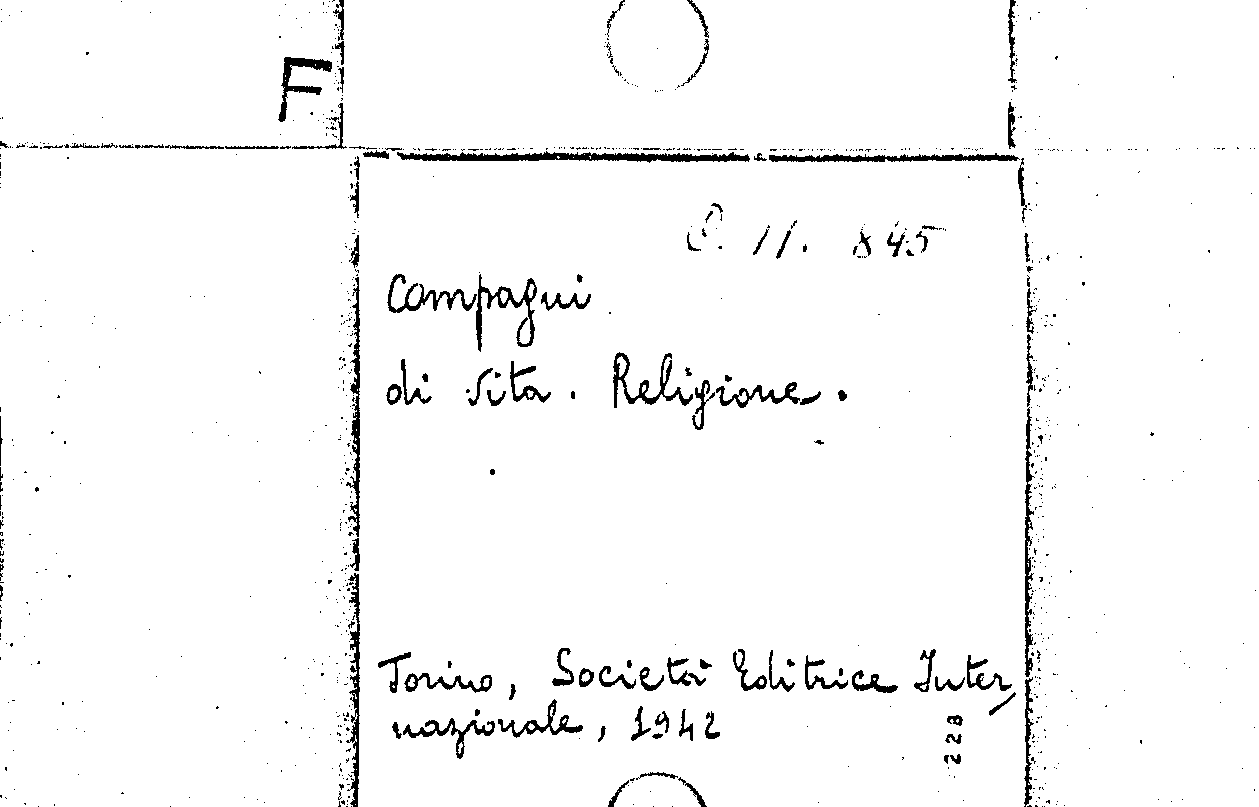 F
C. 11. 845
Compagni
di vita. Religione.
Torino, Società Editrice Inter
nazionale, 1942
223